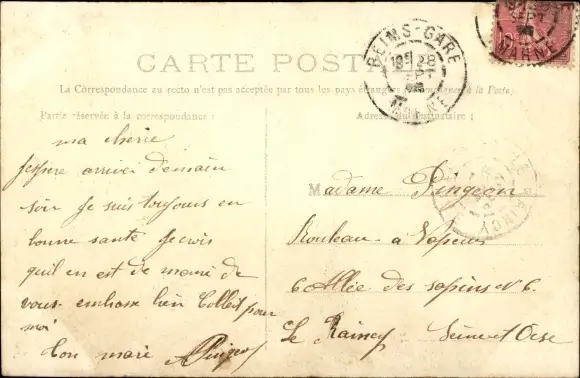 CARTE POSTALE
La Correspondance au recto n'est pas acceptée par tous les pays étrangers (
à la Poste)
Partie réservée à la correspondance
Adresse du destinataire
REIMS-GARE
18 28
SEPT
MARNE
SEPT
MARNE
RAINCY
ma cherie
J'espere arriver demain
soir Je suis toujours en
bonne santé Je crois
quil en est de meme de
vous embrasse bien pour
moi
Ton mari APingeon
Madame Pingeon
Rouleau à Vapeur
6 Allée des sapins N 6.
Le Raincy Seine et Oise